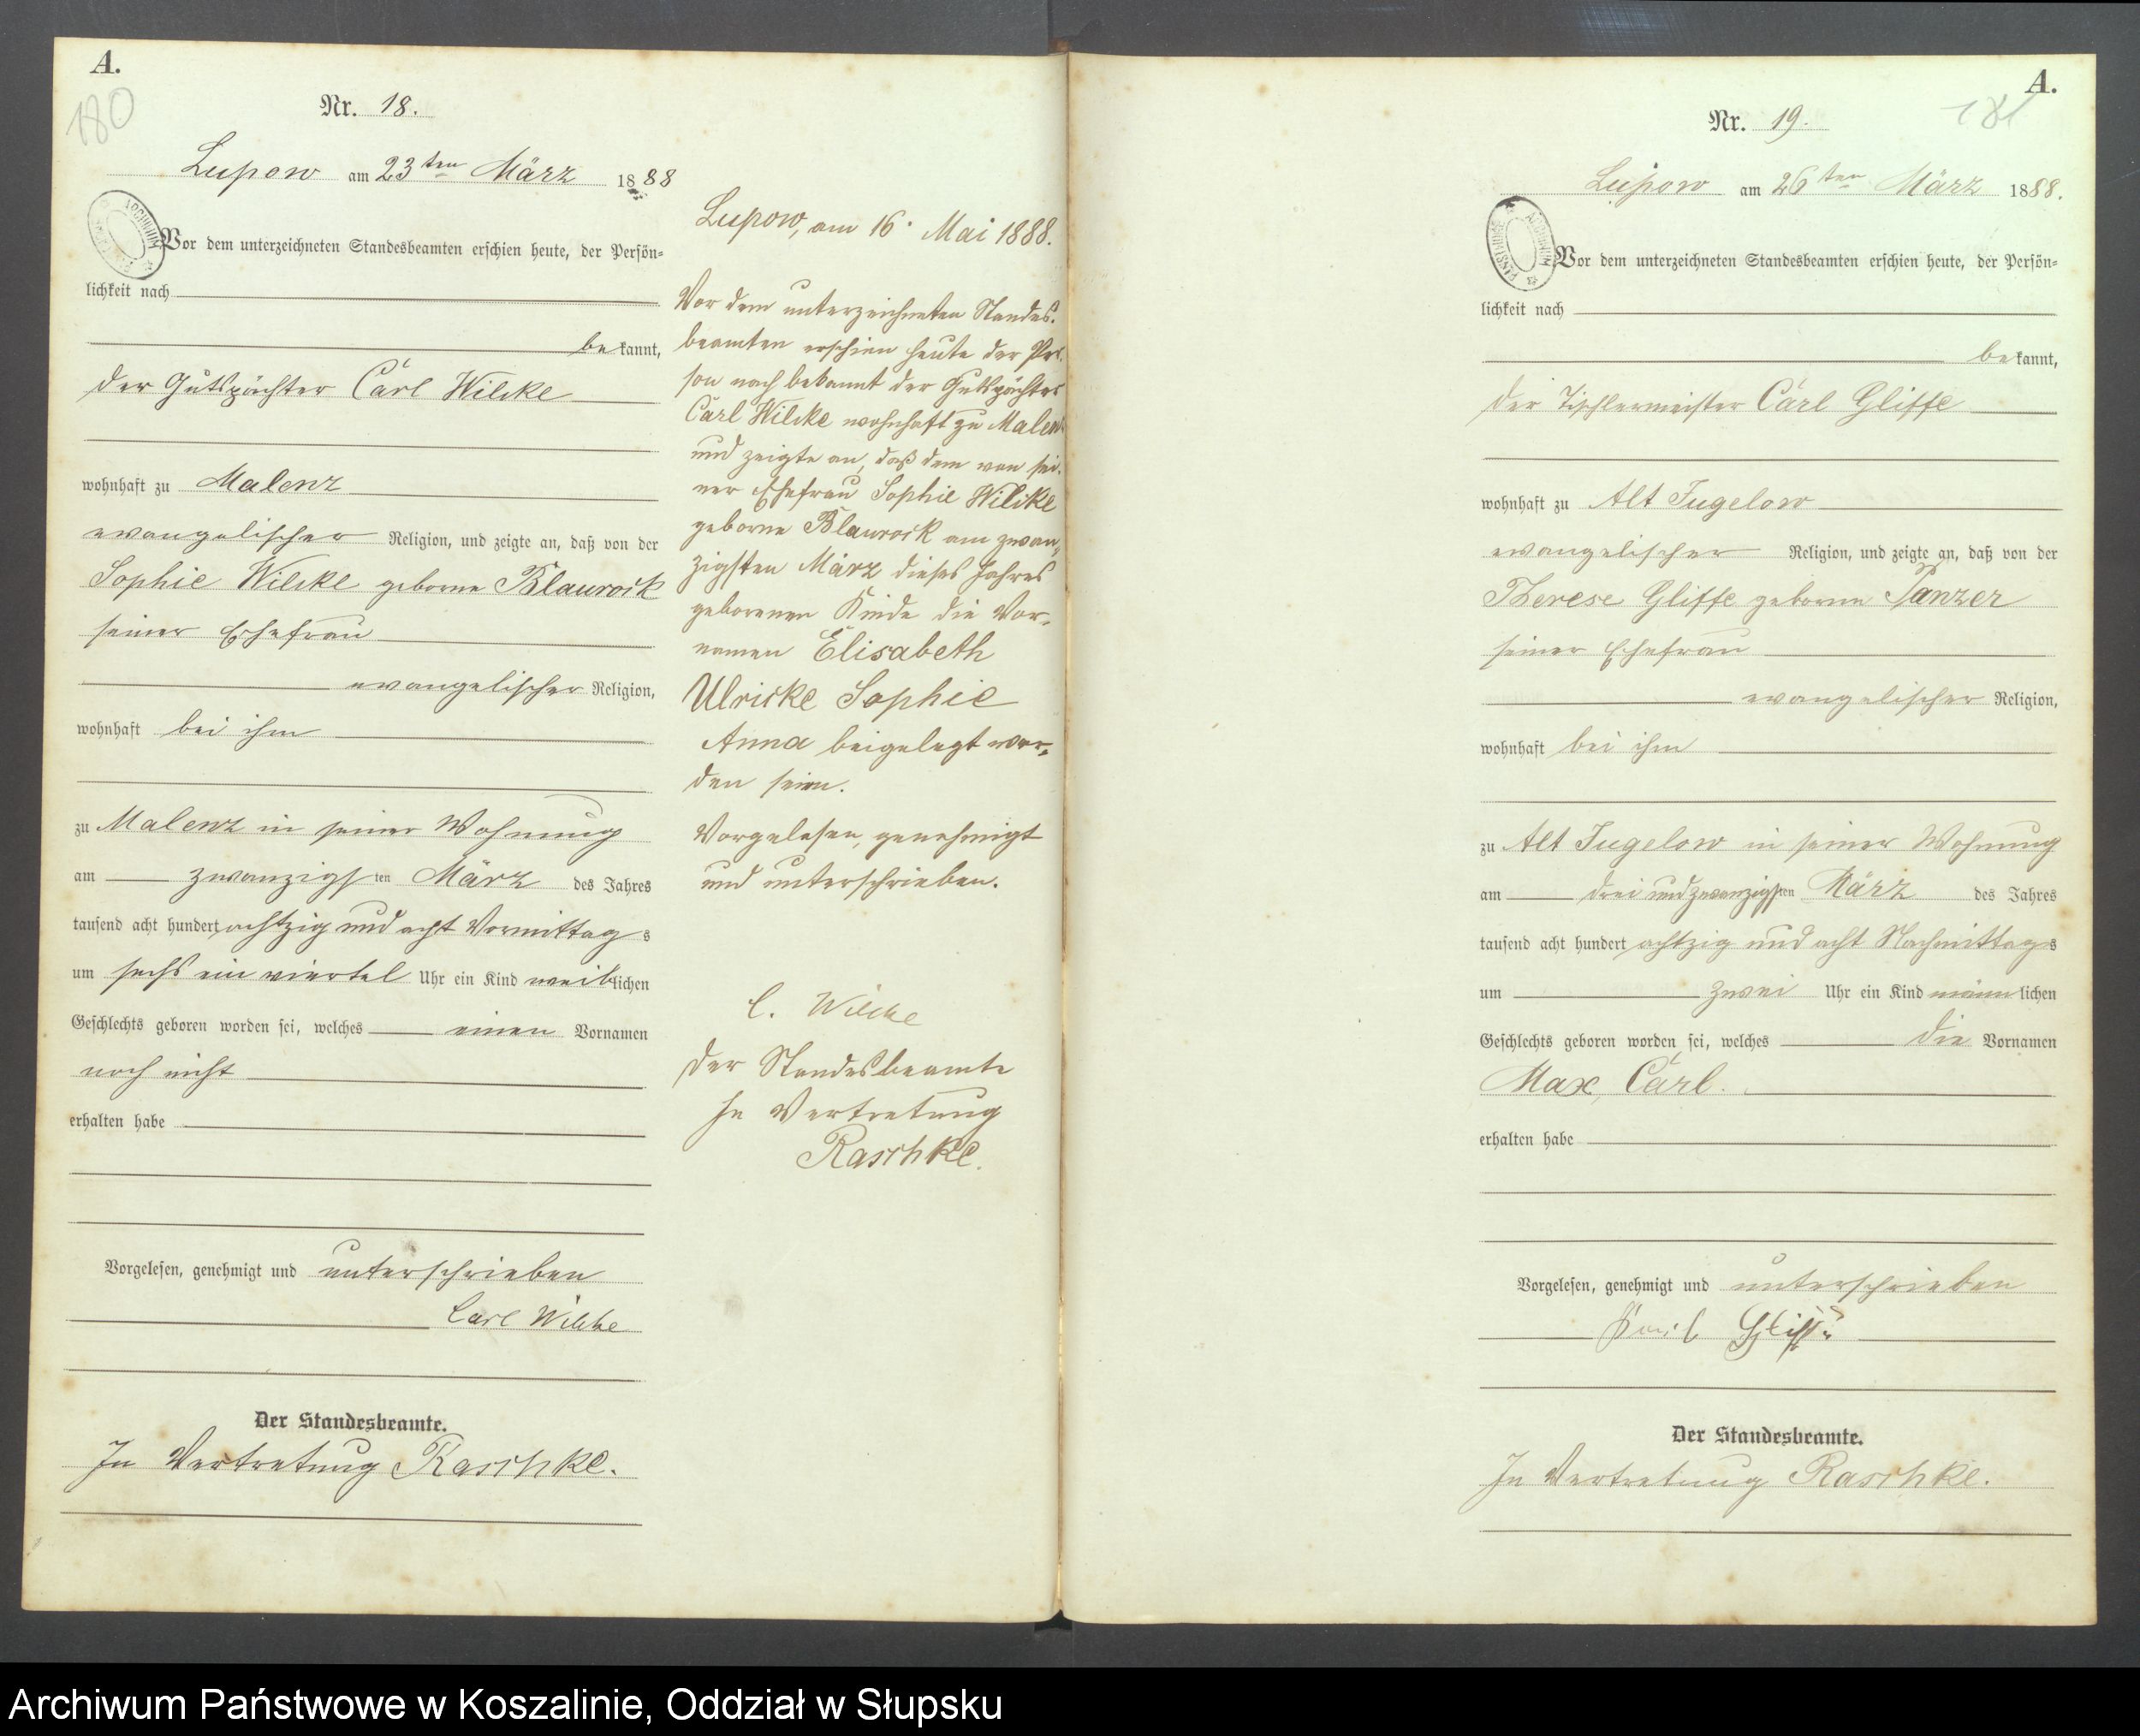 A.
180
Nr. 18.
Lupow am 23ten März 1888
Vor dem unterzeichneten Standesbeamten erschien heute, der Persön-
lichkeit nach
bekannt,
der Gutspächter Carl Wilcke
wohnhaft zu Malenz
evangelischer Religion, und zeigte an, daß von der
Sophie Wilcke geborne Blaurock
seiner Ehefrau
evangelischer Religion,
wohnhaft bei ihm
zu Malenz in seiner Wohnung
am zwanzigsten März des Jahres
tausend acht hundert achtzig und acht Vormittags
um sechs ein viertel Uhr ein Kind weiblichen
Geschlechts geboren worden sei, welches einen Vornamen
noch nicht
erhalten habe
Vorgelesen, genehmigt und unterschrieben
Carl Wilcke
Der Standesbeamte.
In Vertretung Raschke.
Lupow, am 16. Mai 1888.
Vor dem unterzeichneten Standes-
beamten erschien heute der Per-
son nach bekannt der Gutspächter
Carl Wilcke wohnhaft zu Malenz
und zeigte an, daß dem von sei-
ner Ehefrau Sophie Wilcke
geborne Blaurock am zwan-
zigsten März dieses Jahres
geborenen Kinde die Vor-
namen Elisabeth
Ulricke Sophie
Anna beigelegt wor-
den seien.
Vorgelesen, genehmigt
und unterschrieben.
C. Wilcke
Der Standesbeamte
In Vertretung
Raschke.
A.
181
Nr. 19.
Lupow am 26ten März 1888.
Vor dem unterzeichneten Standesbeamten erschien heute, der Persön-
lichkeit nach
bekannt,
der Tischlermeister Carl Gliffe
wohnhaft zu Alt Jugelow
evangelischer Religion, und zeigte an, daß von der
Therese Gliffe geborne Panzer
seiner Ehefrau
evangelischer Religion,
wohnhaft bei ihm
zu Alt Jugelow in seiner Wohnung
am drei und zwanzigsten März des Jahres
tausend acht hundert achtzig und acht Nachmittags
um zwei Uhr ein Kind männlichen
Geschlechts geboren worden sei, welches die Vornamen
Max Carl.
erhalten habe
Vorgelesen, genehmigt und unterschrieben
Der Standesbeamte.
In Vertretung Raschke.
Archiwum Państwowe w Koszalinie, Oddział w Słupsku